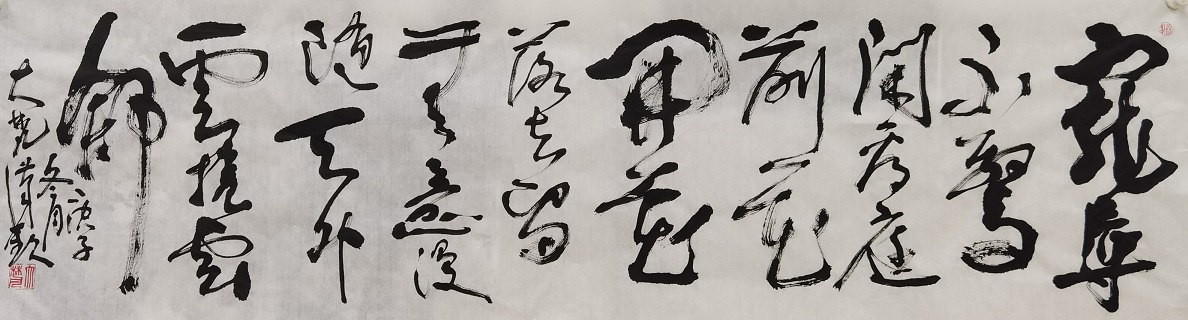 寵辱
不驚
閑看庭
前花
開花
落去留
无意漫
随天外
雲捲雲
舒
庚子
冬月
大楚漢